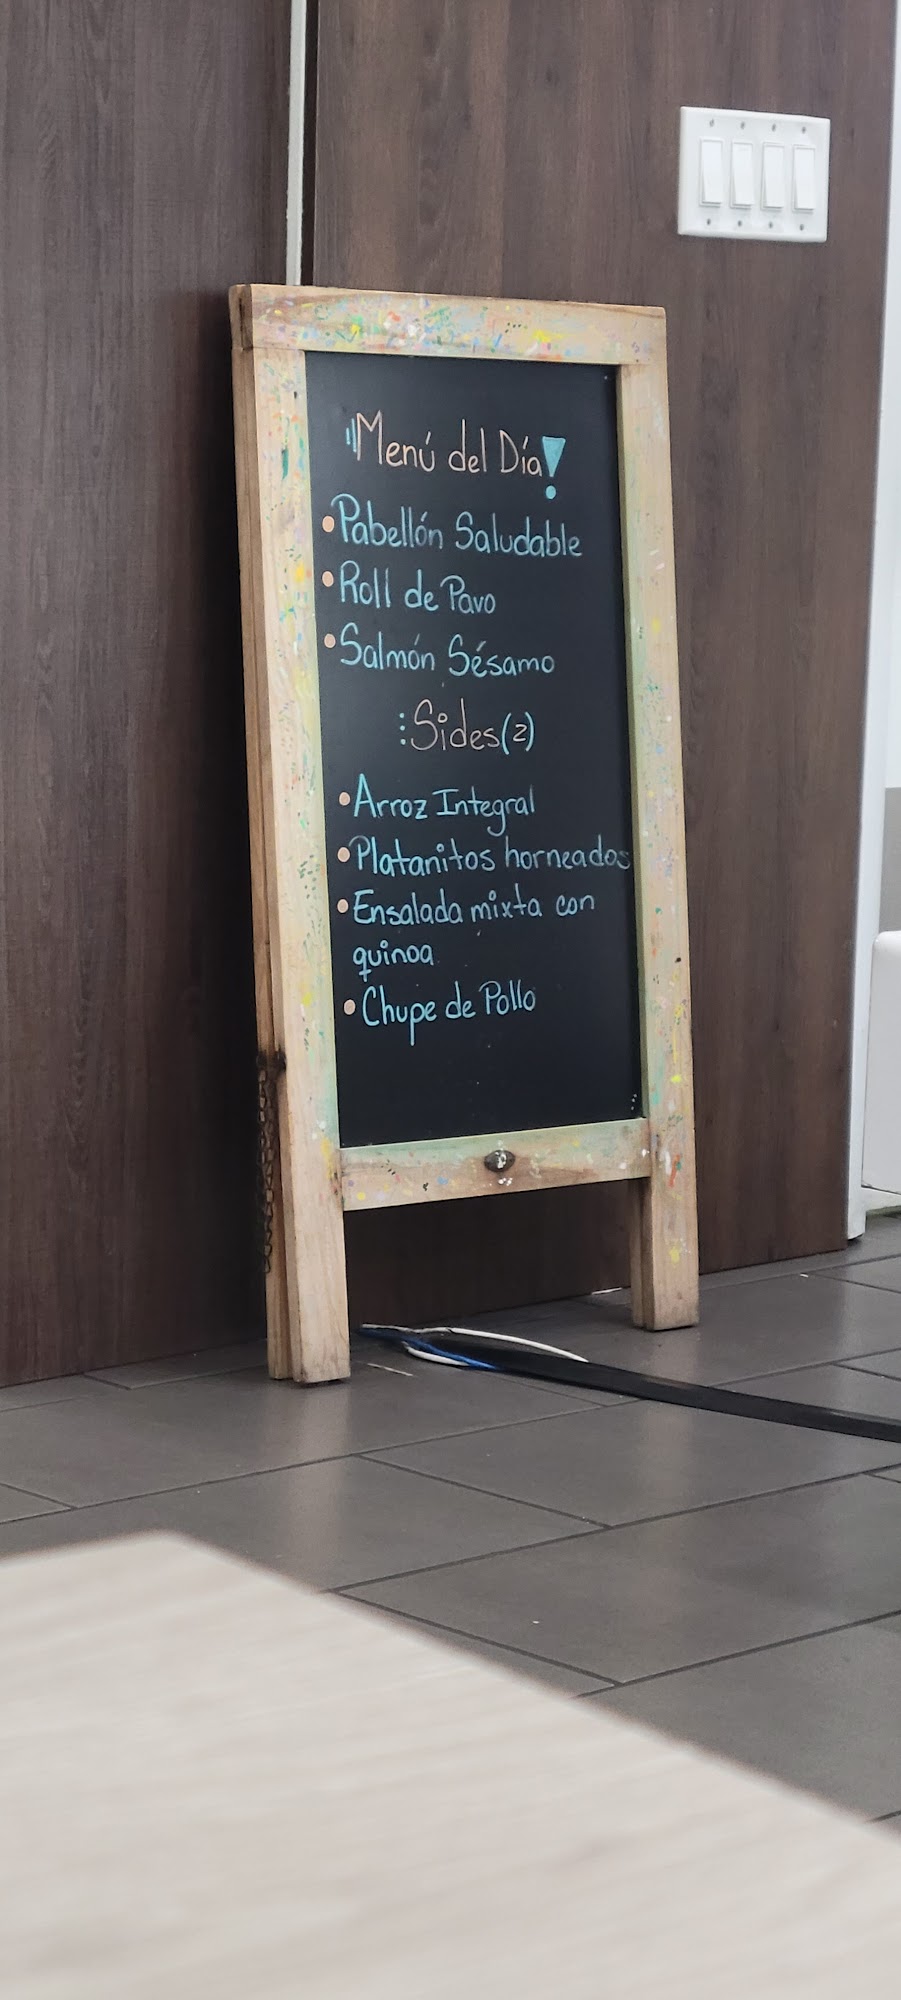 Menú del Día!
• Pabellón Saludable
• Roll de Pavo
• Salmón Sésamo
Sides(2)
• Arroz Integral
• Platanitos horneados
• Ensalada mixta con
quinoa
• Chupe de Pollo